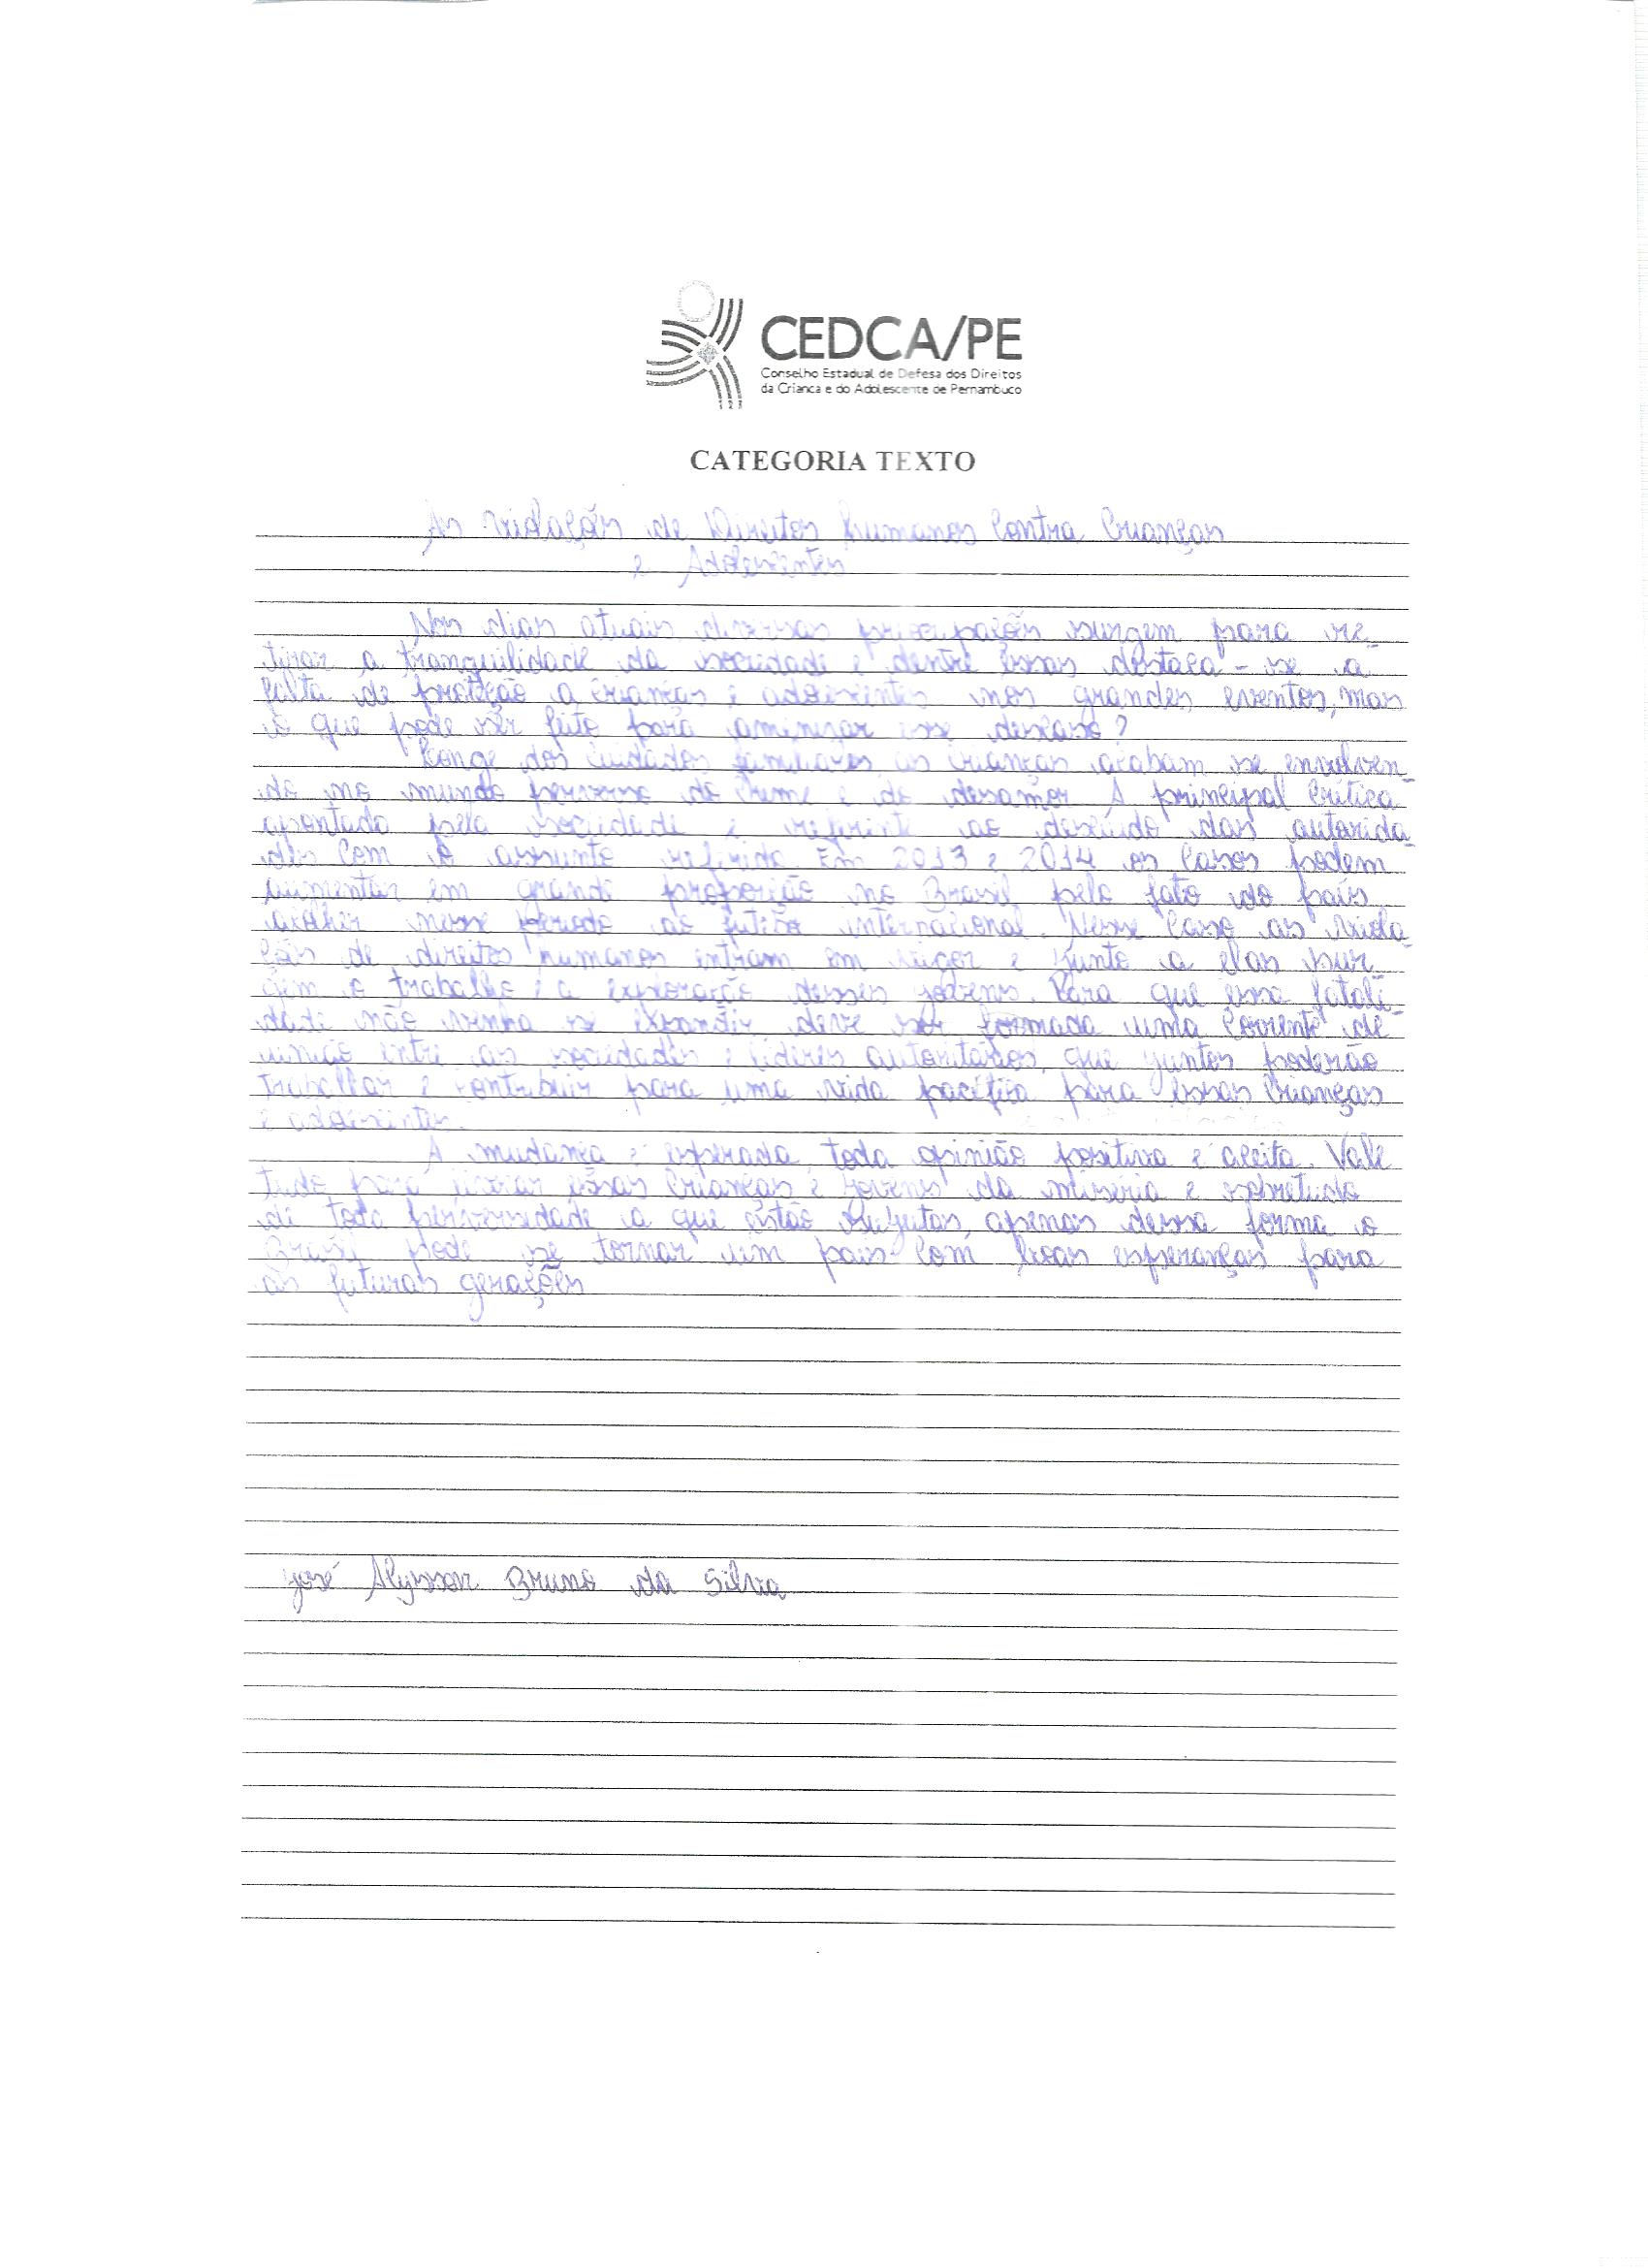 CEDCA/PE
Conselho Estadual de Defesa dos Direitos
da Criança e do Adolescente de Pernambuco
CATEGORIA TEXTO
As Violações de Direitos humanos Contra Crianças
e Adolescentes
Nos dias atuais diversas preocupações surgem para re-
tirar a tranquilidade da sociedade e dentre essas destaca-se a
falta de proteção a crianças e adolescentes nos grandes eventos, mas
o que pode ser feito para amenizar esse descaso?
Longe dos cuidados familiares as crianças acabam se envolven-
do no mundo perverso do crime e do desamor. A principal crítica
apontada pela sociedade é referente ao descuido das autorida-
des com o assunto referido. Em 2013 e 2014 os casos podem
aumentar em grande proporção no Brasil pelo fato do país
acolher nesse período ao futebol internacional. Nesse caso as viola-
ções de direitos humanos entram em vigor e junto a elas sur-
gem o trabalho e a exploração desses jovens. Para que essa fatali-
dade não venha se expandir deve ser formada uma corrente de
união entre as sociedades e líderes autoritários, que juntos poderão
trabalhar e contribuir para uma vida pacífica para essas crianças
e adolescentes.
A mudança é esperada, toda opinião positiva é aceita. Vale
tudo para livrar essas crianças e jovens da miséria e sobretudo
de toda perversidade a que estão sujeitas, apenas dessa forma o
Brasil pode se tornar um país com boas esperanças para
as futuras gerações
José Alysson Bruno da Silva